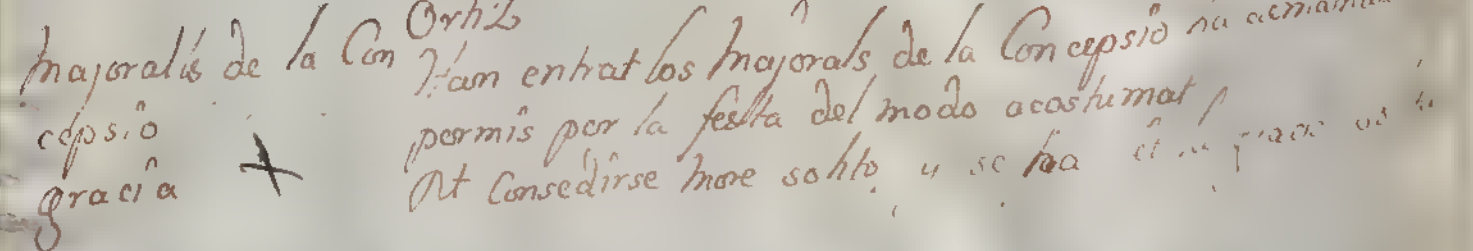 Ortiz
Majoralis de la Con
cepsio
gracia
Han entrat los Majorals de la Concepsio
permis per la festa del modo acostumat
At Consedirse more solito y se ha